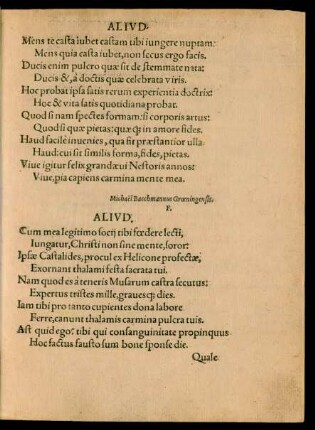 ALIVD.
Mens te casta iubet castam tibi iungere nuptam:
Mens quia casta iubet, non secus ergo facis.
Ducis enim pulcro quæ sit de stemmate nata:
Ducis &, à doctis quæ celebrata viris.
Hoc probat ipsa satis rerum experientia doctrix:
Hoc & vita satis quotidiana probat.
Quod si nam spectes formam: si corporis artus:
Quod si quæ pietas: quæq; in amore fides.
Haud facilè inuenies, qua sit præstantior vlla
Haud: cui sit similis forma, fides, pietas.
Viue igitur felix grandæui Nestoris annos:
Viue, pia capiens carmina mente mea.
Michaël Bachmannus Grœningensis
F.
ALIVD.
Cum mea legitimo socij tibi fœdere lecti,
Iungatur, Christi non sine mente, soror:
Ipsæ Castalides, procul ex Helicone profectæ,
Exornant thalami festa sacrata tui.
Nam quod es à teneris Musarum castra secutus:
Expertus tristes mille, graueisq; dies.
Iam tibi pro tanto cupientes dona labore
Ferre, canunt thalamis carmina pulcra tuis.
Ast quid ego? tibi qui consanguinitate propinquus
Hoc factus fausto sum bone sponse die.
Quale